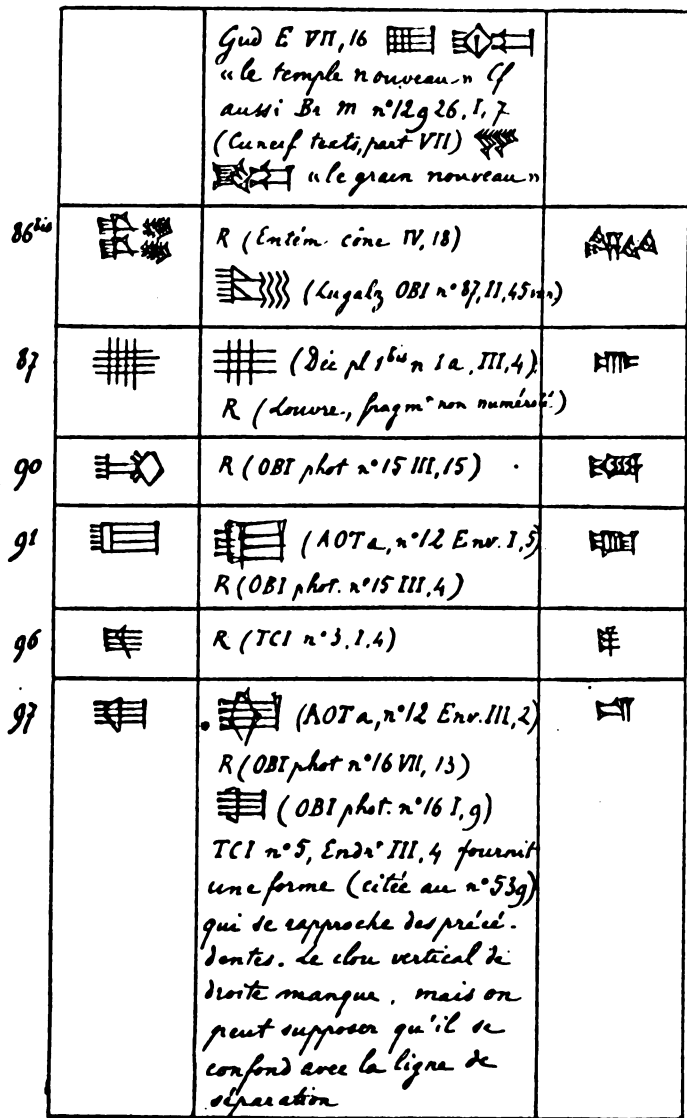 Gud E VII, 16
«le temple nouveau» Cf
aussi Br M n° 12926, I, 7
(Cuneif texts, part VII)
«le grain nouveau»
86 bis R (Entém. cône IV, 18)
(Lugalz OBI n° 87, II, 45 var)
87 (Déc pl 1 bis n 1a, III, 4)
R (Louvre, fragmt non numéroté)
90 R (OBI phot n° 15 III, 15)
91 (AOTa, n° 12 Env. I, 5)
R (OBI phot. n° 15 III, 4)
96 R (TCI n° 3, I, 4)
97 (AOTa, n° 12 Env. III, 2)
R (OBI phot n° 16 VII, 13)
(OBI phot. n° 16 I, 9)
TCI n° 5, Endrt III, 4 fournit
une forme (citée au n° 539)
qui se rapproche des précé-
dentes. Le clou vertical de
droite manque, mais on
peut supposer qu'il se
confond avec la ligne de
séparation